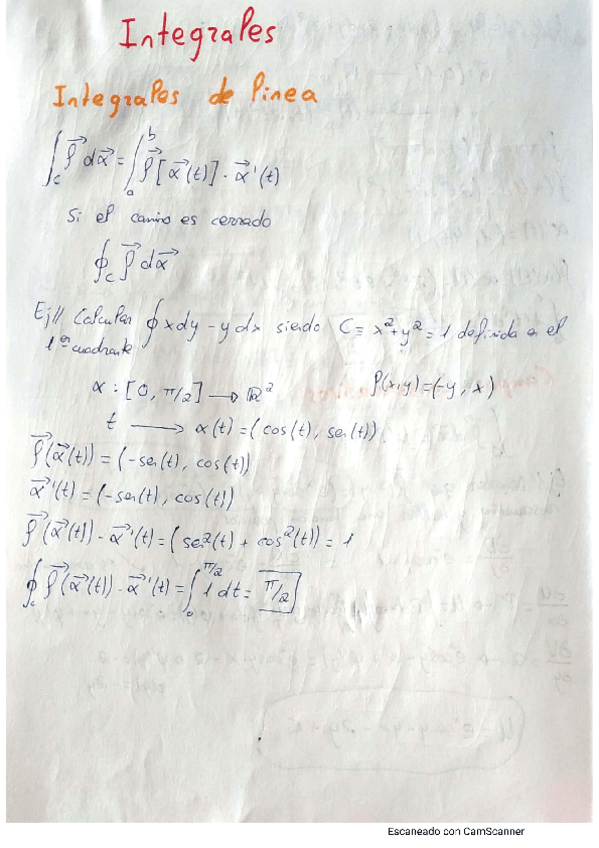 Integrales
Integrales de linea
∫_c f⃗ dα⃗ = ∫_a^b f⃗ [α⃗(t)] · α⃗'(t)
Si el camino es cerrado
∮_c f⃗ dα⃗
Ej// Calcular ∮ xdy - ydx siendo C = x²+y² = 1 definida en el
1er cuadrante
α : [0, π/2] → ℝ² f(x,y) = (-y, x)
t → α(t) = (cos(t), sen(t))
f⃗(α⃗(t)) = (-sen(t), cos(t))
α⃗'(t) = (-sen(t), cos(t))
f⃗(α⃗(t)) · α⃗'(t) = (sen²(t) + cos²(t)) = 1
∮_c f⃗(α⃗(t)) · α⃗'(t) = ∫_0^{π/2} 1 dt = π/2
Escaneado con CamScanner